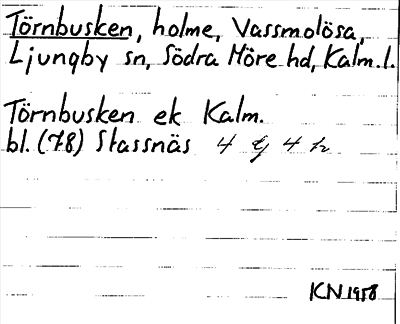 Törnbusken, holme, Vassmolösa,
Ljungby sn, Södra Möre hd, Kalm.l.
Törnbusken ek Kalm.
bl. (78) Stassnäs 4 g 4 h
KN 1958